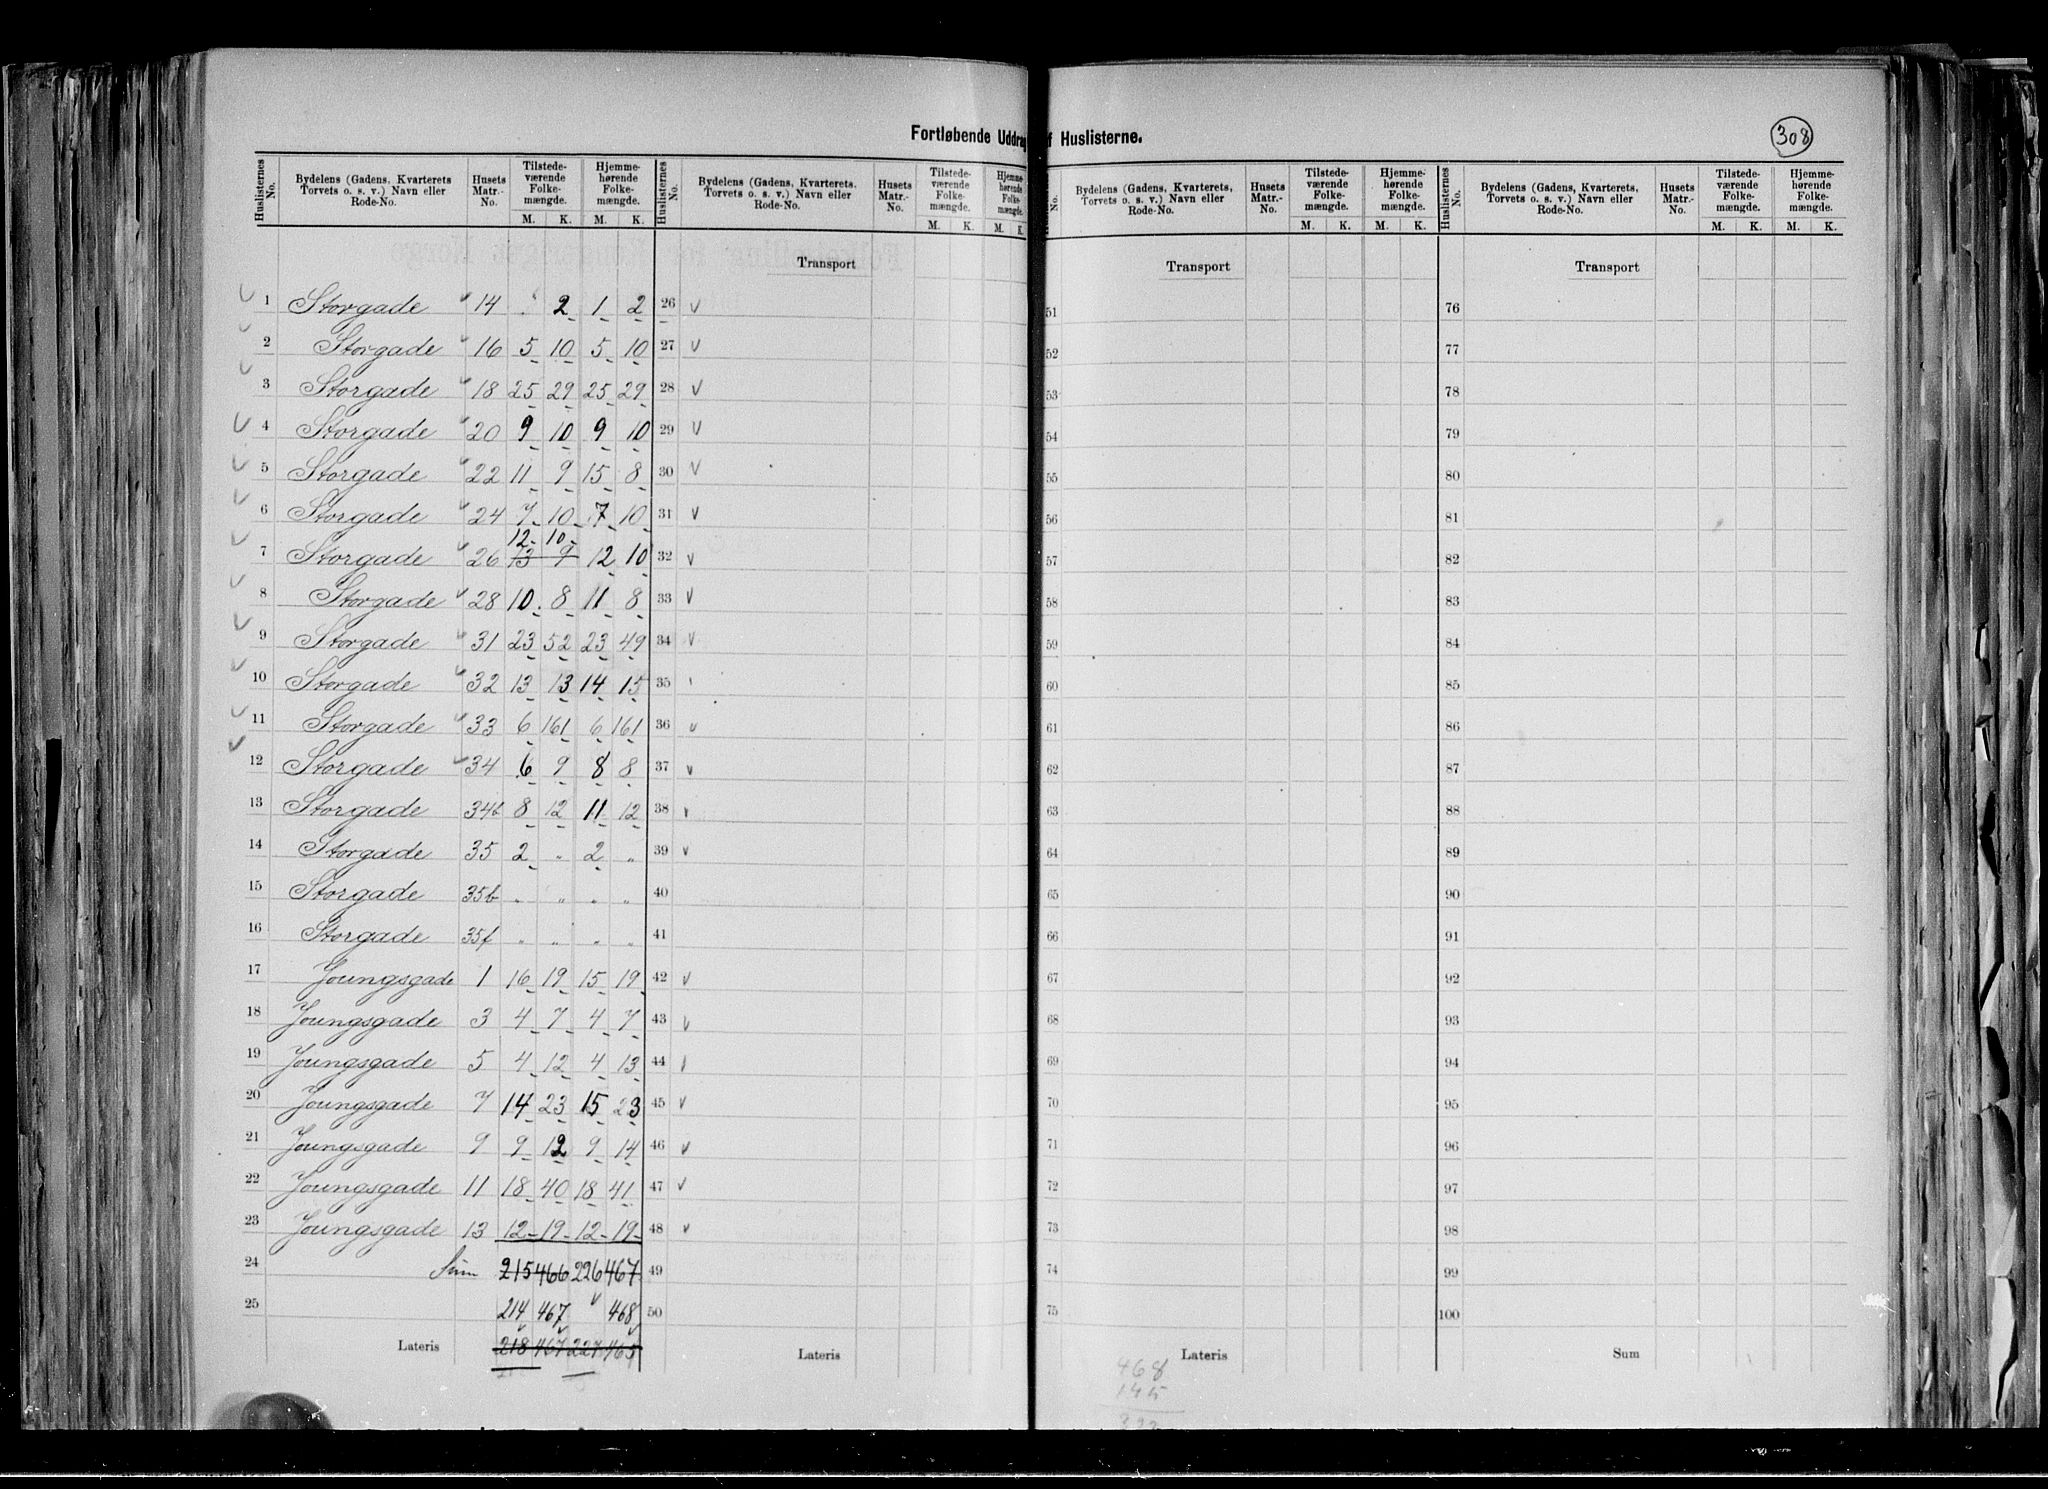 Fortløbende Uddrag
f Huslisterne.
308
Huslisternes No. Bydelens (Gadens, Kvarterets Torvets o. s. v.) Navn eller Rode-No. Husets Matr.-No. Tilstedeværende Folkemængde. M. K. Hjemmehørende Folkemængde. M. K.
Huslisternes No. Bydelens (Gadens, Kvarterets, Torvets o. s. v.) Navn eller Rode-No. Husets Matr.-No. Tilstedeværende Folkemængde. M. K. Hjemmehørende Folkemængde. M. K.
No. Bydelens (Gadens, Kvarterets, Torvets o. s. v.) Navn eller Rode-No. Husets Matr.-No. Tilstedeværende Folkemængde. M. K. Hjemmehørende Folkemængde. M. K.
Huslisternes No. Bydelens (Gadens, Kvarterets, Torvets o. s. v.) Navn eller Rode-No. Husets Matr.-No. Tilstedeværende Folkemængde. M. K. Hjemmehørende Folkemængde. M. K.
Transport Transport Transport
1 Storgade 14 . 2 1 2 26 51 76
2 Storgade 16 5 10 5 10 27 52 77
3 Storgade 18 25 29 25 29 28 53 78
4 Storgade 20 9 10 9 10 29 54 79
5 Storgade 22 11 9 15 8 30 55 80
6 Storgade 24 7 10 7 10 31 56 81
12 10
7 Storgade 26 13 9 12 10 32 57 82
8 Storgade 28 10 8 11 8 33 58 83
9 Storgade 31 23 52 23 49 34 59 84
10 Storgade 32 13 13 14 15 35 60 85
11 Storgade 33 6 161 6 161 36 61 86
12 Storgade 34 6 9 8 8 37 62 87
13 Storgade 34b 8 12 11 12 38 63 88
14 Storgade 35 2 " 2 " 39 64 89
15 Storgade 35b " " " " 40 65 90
16 Storgade 35f " " " " 41 66 91
17 Youngsgade 1 16 19 15 19 42 67 92
18 Youngsgade 3 4 7 4 7 43 68 93
19 Youngsgade 5 4 12 4 13 44 69 94
20 Youngsgade 7 14 23 15 23 45 70 95
21 Youngsgade 9 9 12 9 14 46 71 96
22 Youngsgade 11 18 40 18 41 47 72 97
23 Youngsgade 13 12 19 12 19 48 73 98
24 Sum 215 466 226 467 49 74 99
25 214 467 468 50 75 100
Lateris 218 467 227 465 Lateris Lateris Sum
468
145